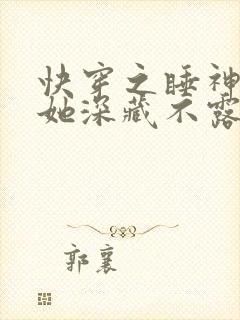 快穿之睡神
她深藏不露
郭襄